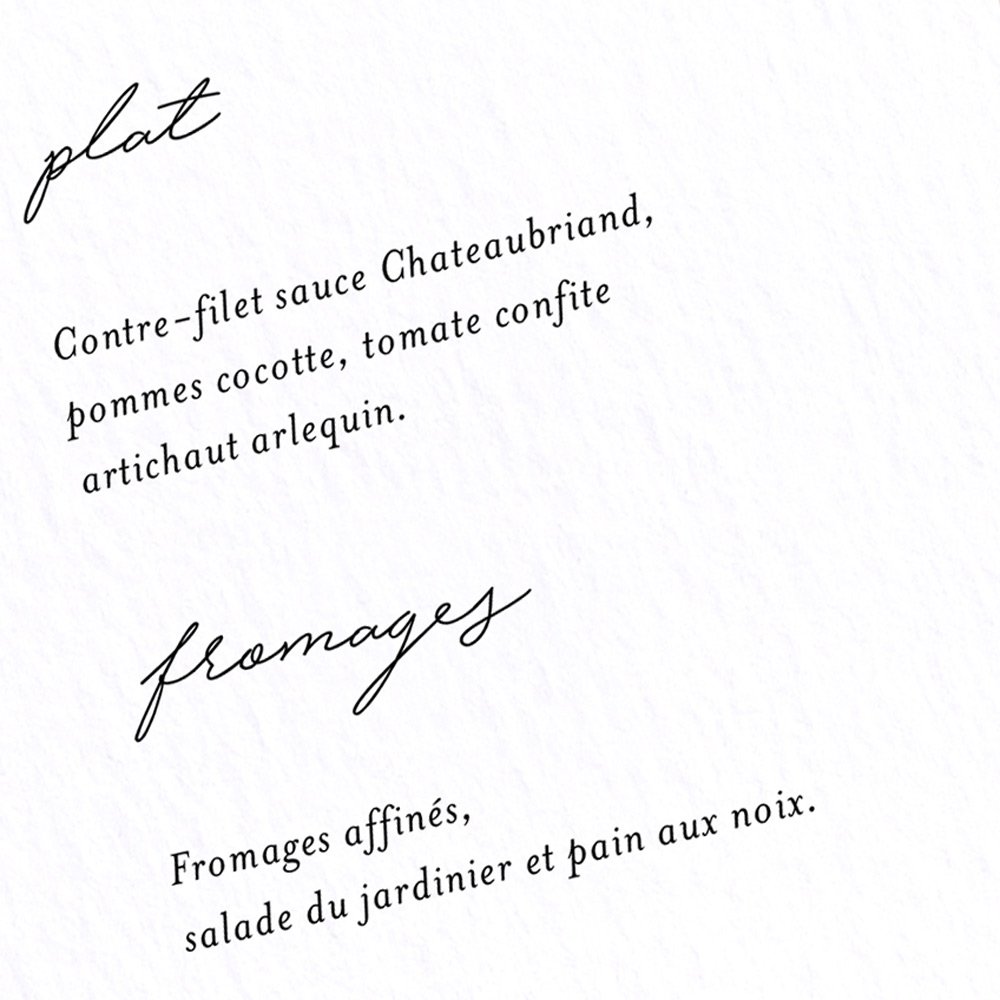 plat
Contre-filet sauce Chateaubriand,
pommes cocotte, tomate confite
artichaut arlequin.
fromages
Fromages affinés,
salade du jardinier et pain aux noix.